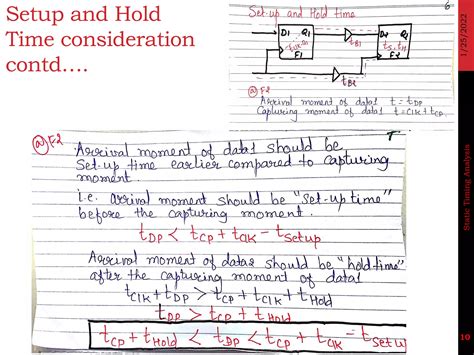 Setup and Hold
Time consideration
contd....
Set-up and Hold time
6
D1 Q1
F1
tB1
D2 Q2
tS, tH
F2
tB2
@ F2
Arrival moment of data1 t = tDP
Capturing moment of data1 t = tClK + tCP
1/25/2022
@ F2
Arrival moment of data1 should be
Set-up time earlier compared to capturing
moment.
i.e. arrival moment should be "set-up time"
before the capturing moment.
tDP < tCP + tClK - tSetup
Arrival moment of data2 should be "hold time"
after the capturing moment of data1
tClK + tDP > tCP + tClK + tHold
tDP > tCP + tHold
tCP + tHold < tDP < tCP + tClK - tSetup
Static Timing Analysis
10